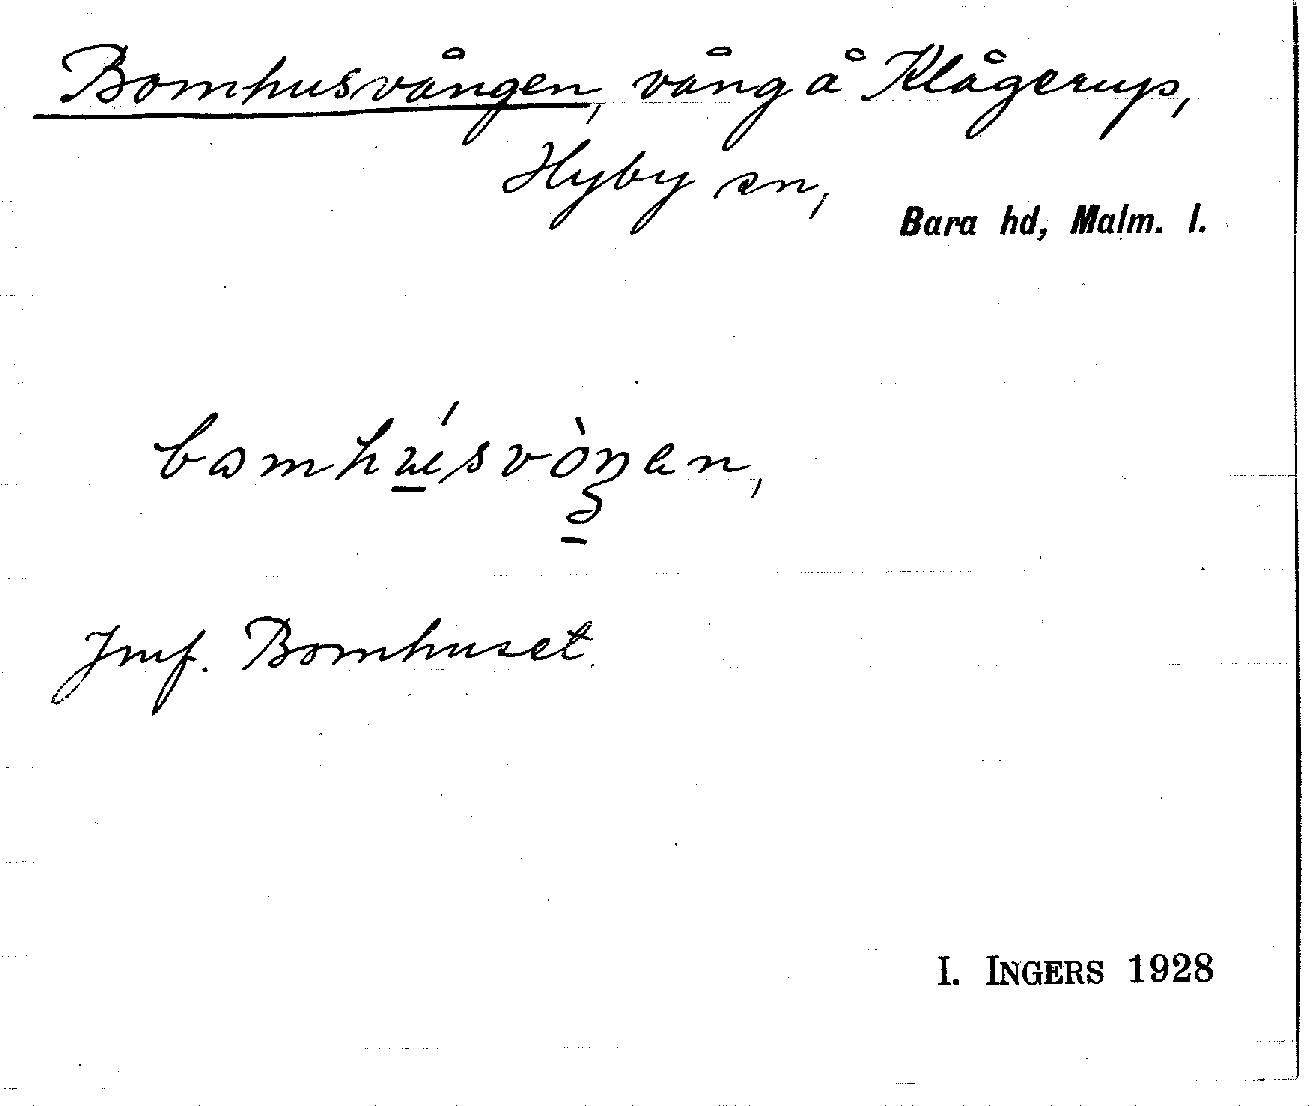 Bomhusvången, vång å Klågerup,
Hyby sn,
Bara hd, Malm. l.
bomhúsvòŋen,
Jmf. Bomhuset.
I. INGERS 1928